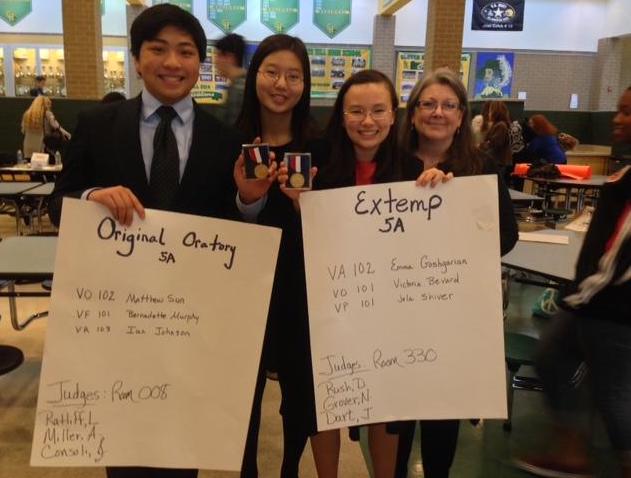 Original Oratory
5A
VO 102 Matthew Sun
VF 101 Bernadette Murphy
VA 103 Ian Johnson
Judges: Room 008
Ratliff, L
Miller, A
Consoli, J
Extemp
5A
VA 102 Emma Goshgarian
VO 101 Victoria Bevard
VP 101 Jola Shiver
Judges: Room 330
Rush, D
Grover, N
Dart, J